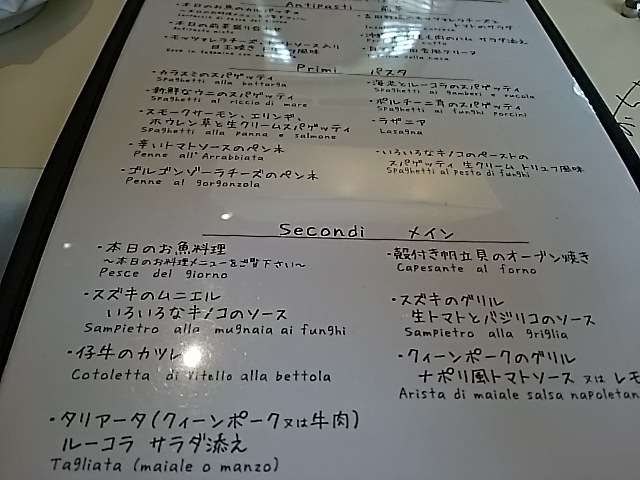 Antipasti 前菜
・本日のお魚の
・本日の前菜盛り合
・モッツァレラチーズ
トマトソース入り
サラダ添え
della casa
Primi パスタ
・カラスミのスパゲッティ
Spaghetti alla bottarga
・新鮮なウニのスパゲッティ
Spaghetti al riccio di mare
・スモークサーモン、エリンギ、
ホウレン草と生クリームスパゲッティ
Spaghetti alla panna e salmone
・辛いトマトソースのペンネ
Penne all'Arrabbiata
・ゴルゴンゾーラチーズのペンネ
Penne al gorgonzola
・海老とルーコラのスパゲッティ
Spaghetti ai gamberi e rucola
・ポルチーニ茸のスパゲッティ
Spaghetti ai funghi porcini
・ラザニア
Lasagna
・いろいろなキノコのペーストの
スパゲッティ 生クリーム トリュフ風味
Spaghetti al pesto di funghi
Secondi メイン
・本日のお魚料理
～本日のお料理メニューをご覧下さい～
Pesce del giorno
・スズキのムニエル
いろいろなキノコのソース
Sampietro alla mugnaia ai funghi
・仔牛のカツレ
Cotoletta di vitello alla bettola
・タリアータ(クィーンポーク又は牛肉)
ルーコラ サラダ添え
Tagliata (maiale o manzo)
・殻付き帆立貝のオーブン焼き
Capesante al forno
・スズキのグリル
生トマトとバジリコのソース
Sampietro alla griglia
・クィーンポークのグリル
ナポリ風トマトソース 又は レモ
Arista di maiale salsa napoletan